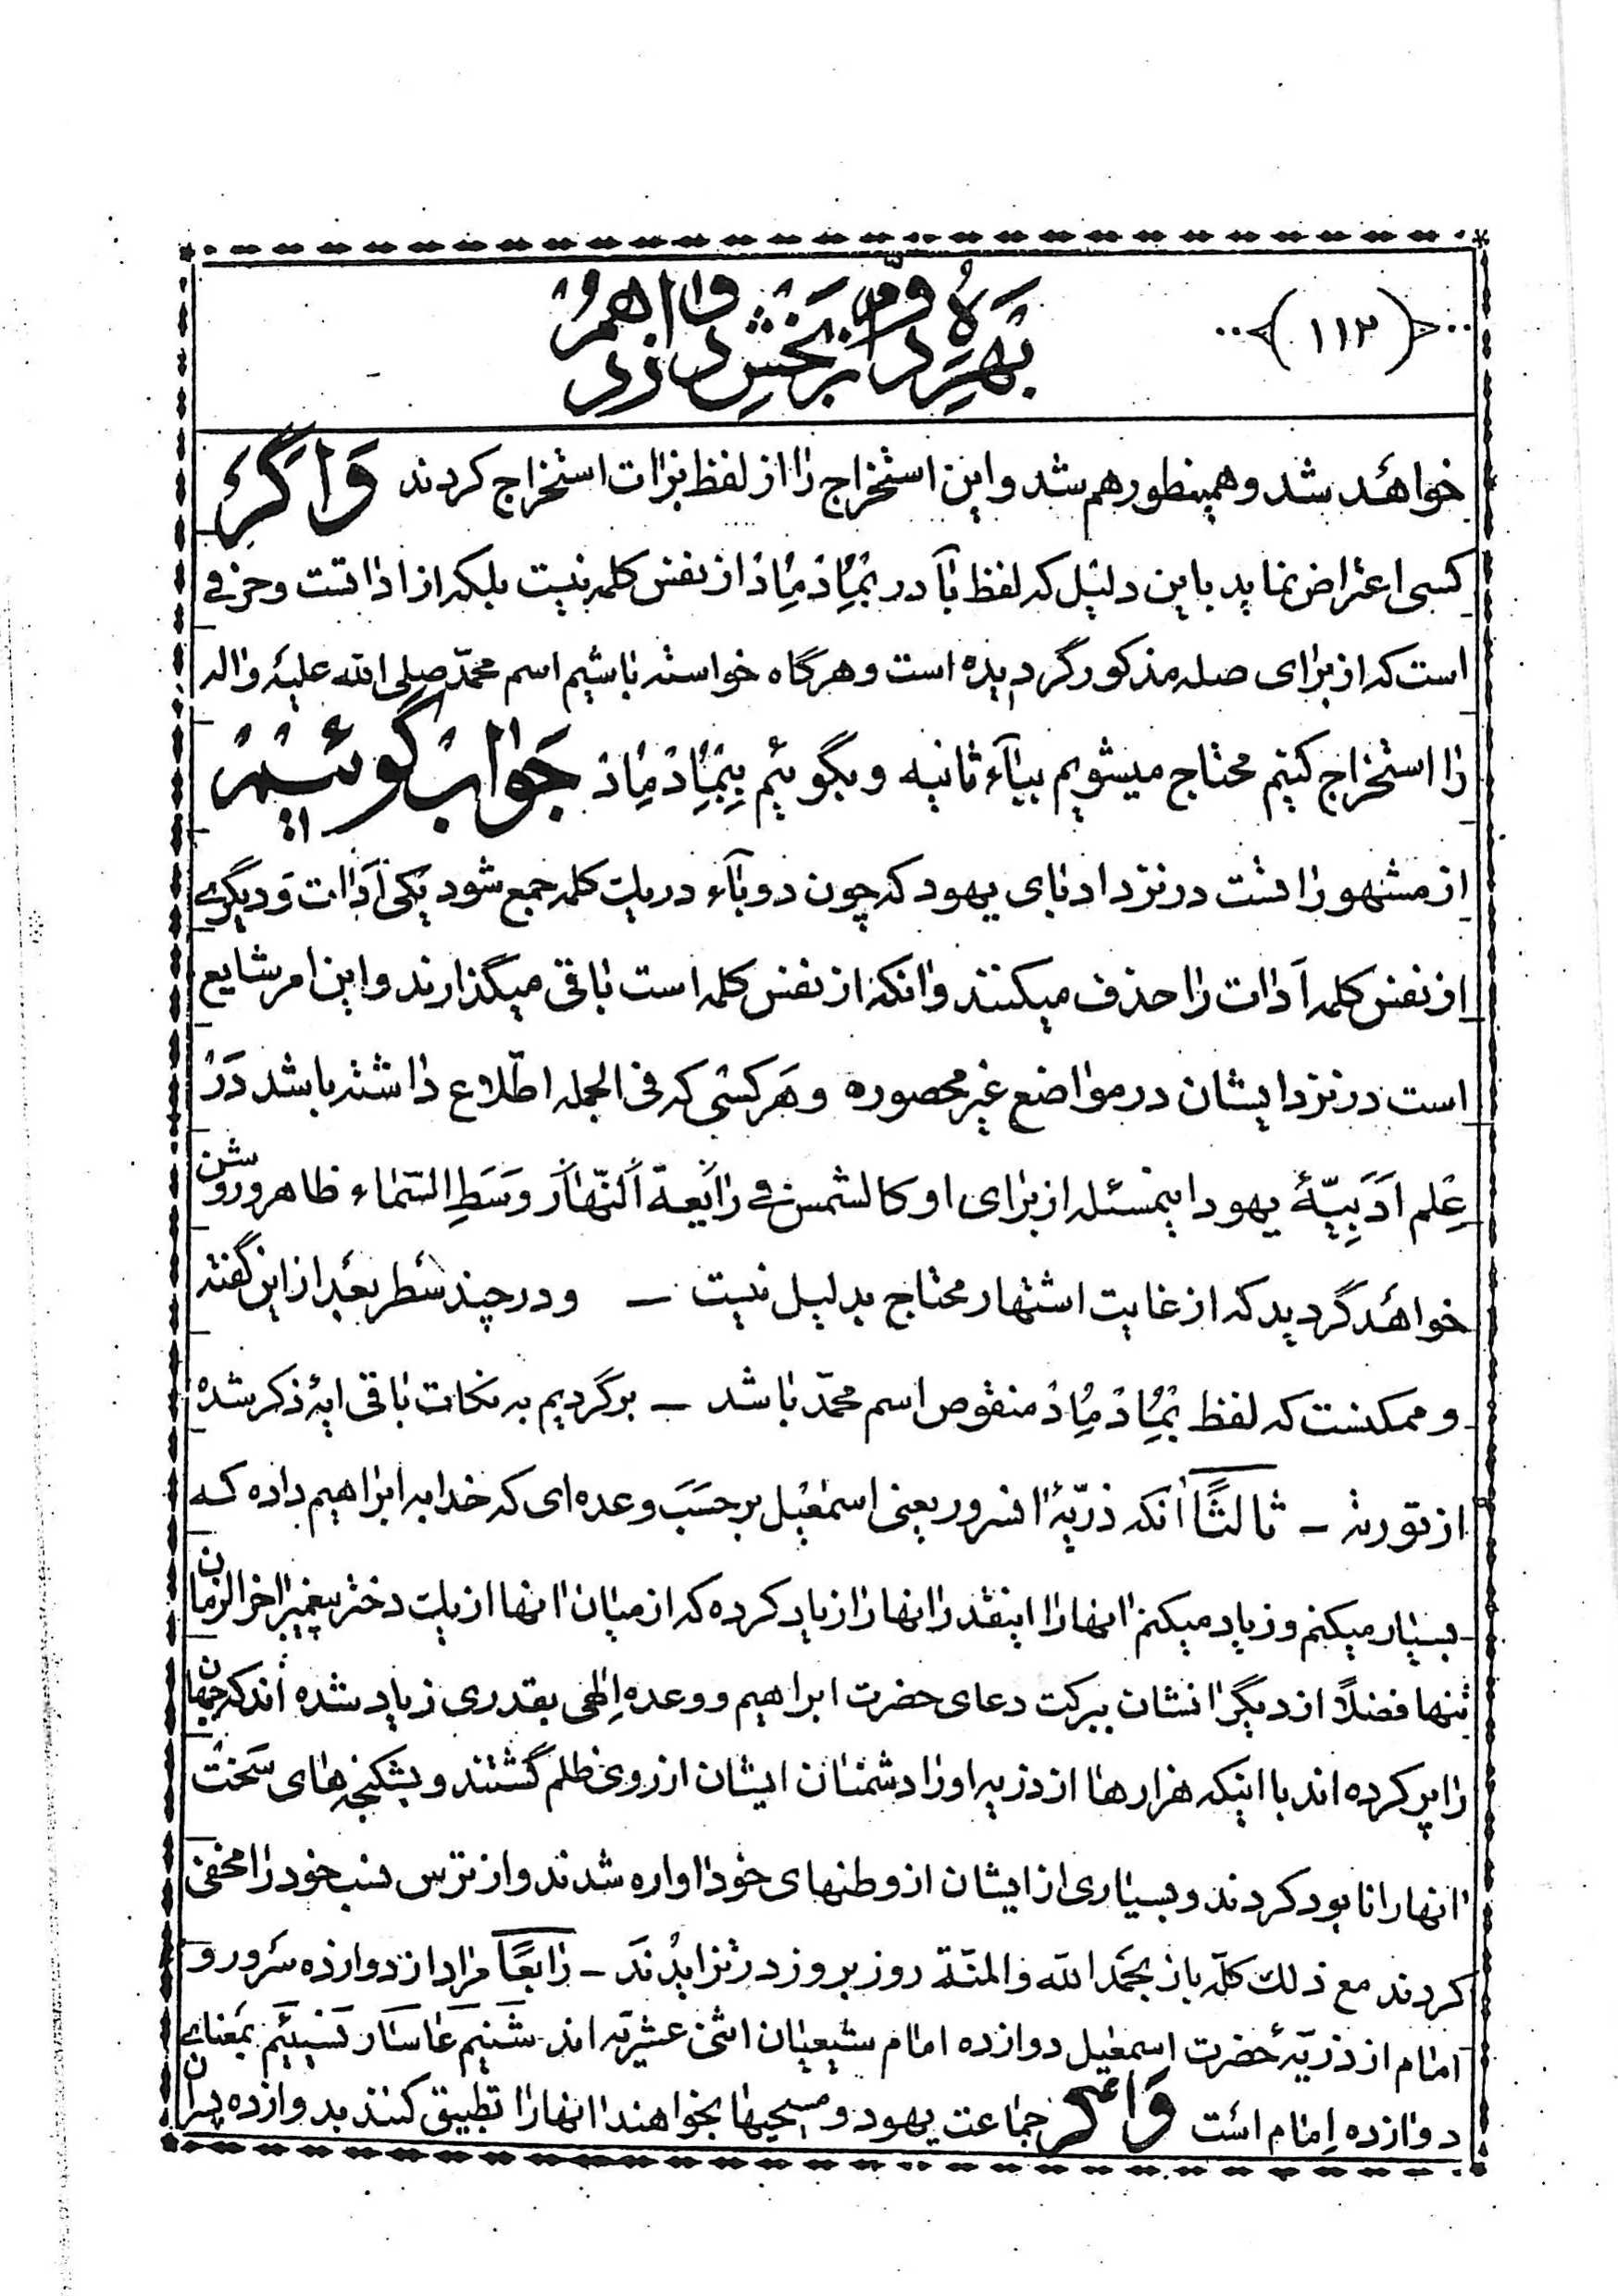 (١١٣)
بهرهٔ دوم از بخش دوازدهم
خواهد شد و همینطور هم شد و این استخراج را از لفظ برات استخراج کردند وَاگَر
کسی اعتراض نماید باین دلیل که لفظ بآ در بِمِادْمِادْ از نفس کلمه نیست بلکه از اداتست و حرفی
است که از برای صله مذکور گردیده است و هرگاه خواسته باشیم اسم محمّد صلی الله علیه واله
را استخراج کنیم محتاج میشویم ببآء ثانیه و بگوئیم بِبِمِادْمِادْ جَواب گوئیم
از مشهوراتست در نزد ادبای یهود که چون دو بآء در یک کلمه جمع شود یکی اَدات وَ دیگری
از نفس کلمه اَدات را حذف میکنند وانکه از نفس کلمه است باقی میگذارند و این امر شایع
است در نزد ایشان در مواضع غیر محصوره و هَر کسی که فی الجمله اطّلاع داشته باشد دَر
عِلم اَدَبِیّهٔ یهود اینمسئله از برای او کالشمس فی رابعة اَلنّهار وَسَطِ السّماء ظاهر و روشن
خواهد گردید که از غایت اشتهار محتاج بدلیل نیست – و در چند سطر بعد از این گفته
و ممکنست که لفظ بِمِادْمِادْ منقوص اسم محمّد باشد – برگردیم به نکات باقی ایهٔ ذکر شده
از توریة – ثالثًا انکه ذرّیّهٔ انسرور یعنی اسمعیل بر حسَبَ وعده‌ای که خدا به ابراهیم داده که
بسیار میکنم و زیاد میکنم انها را اینقدر انها را زیاد کرده که از میان انها از یک دختر پیغمبر اخر الزمان
تنها فضلاً از دیگرانشان ببرکت دعای حضرت ابراهیم و وعده اِلٰهی بقدری زیاد شده اند که جهان
را پر کرده اند با اینکه هزارها از ذریه او را دشمنان ایشان از روی ظلم کشتند و بشکنجه های سَخت
انها را نابود کردند و بسیاری از ایشان از وطنهای خود اواره شدند و از ترس نسب خود را مخفی
کردند مع ذلک کلّه باز بحمَد الله والمنّة روز بروز در تزایدند – رابعًا مراد از دوازده سَرور و
امام از ذریّهٔ حضرت اسمعیل دوازده امام شیعیان اثنی عشریّه اند شَنیم عٰاسٰار نَسیئیم بمَعنای
دوازده اِمام است وَاگر جماعت یهود و مسیحیها بخواهند انها را تطبیق کنند بدوازده پسران